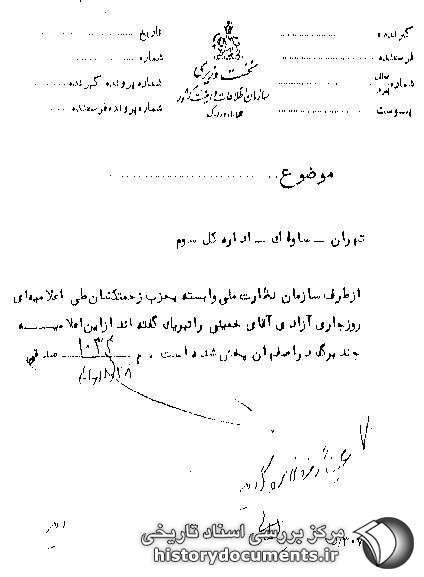 گیرنده
فرستنده
شماره
پیوست
نخست وزیری
سازمان اطلاعات و امنیت کشور
تاریخ
شماره
شماره پرونده گیرنده
شماره پرونده فرستنده
موضوع
تهران - ساواک - اداره کل سوم
از طرف سازمان نظارت ملی وابسته بحزب زحمتکشان طی اعلامیه‌ای
روز جاری آزادی آقای خمینی را تبریک گفته اند از این اعلامیه
چند برگ در اصفهان پخش شده است . م
مرکز بررسی اسناد تاریخی
historydocuments.ir